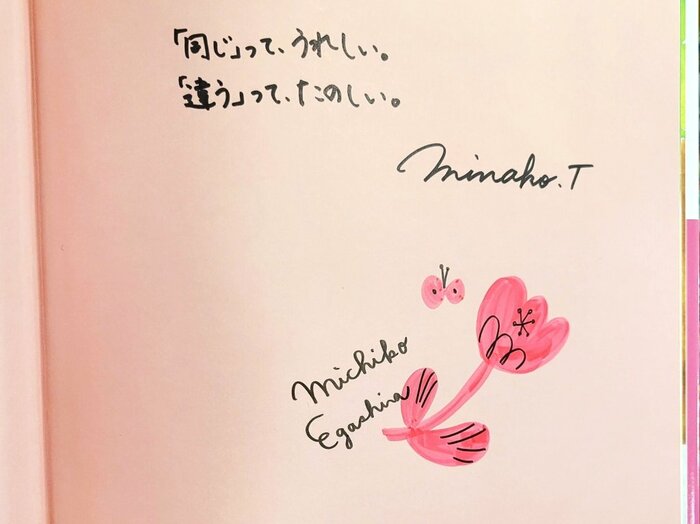 「同じ」って、うれしい。
「違う」って、たのしい。
Minaho.T
Michiko
Egashira